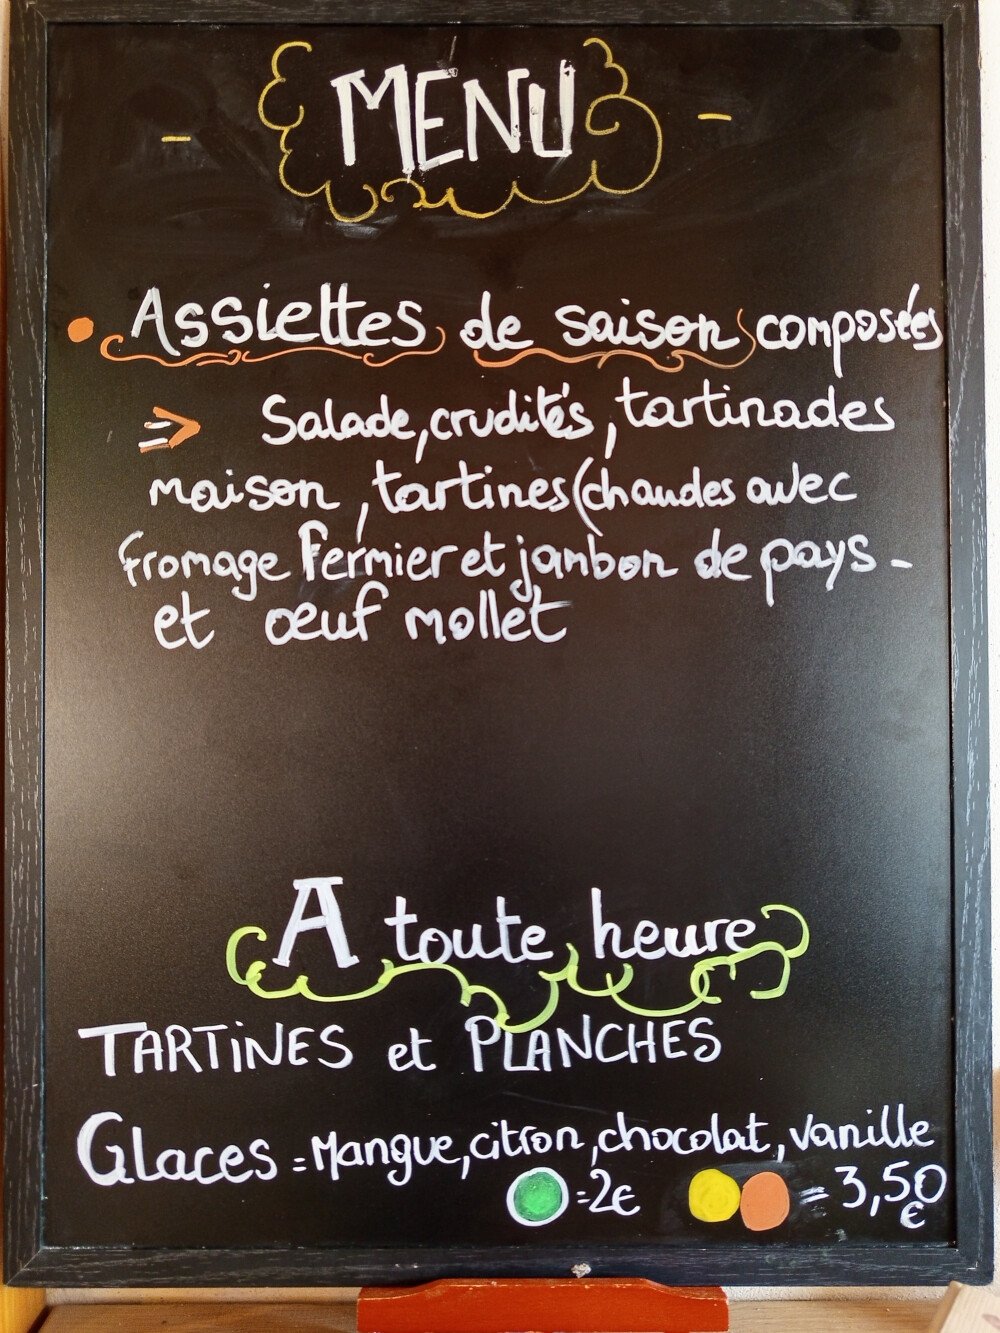 - MENU -
• Assiettes de saison composées
=> Salade, crudités, tartinades
maison, tartines (chaudes avec
fromage fermier et jambon de pays -
et œuf mollet
A toute heure
TARTiNES et PLANCHES
Glaces = Mangue, citron, chocolat, vanille
= 2€ = 3,50 €